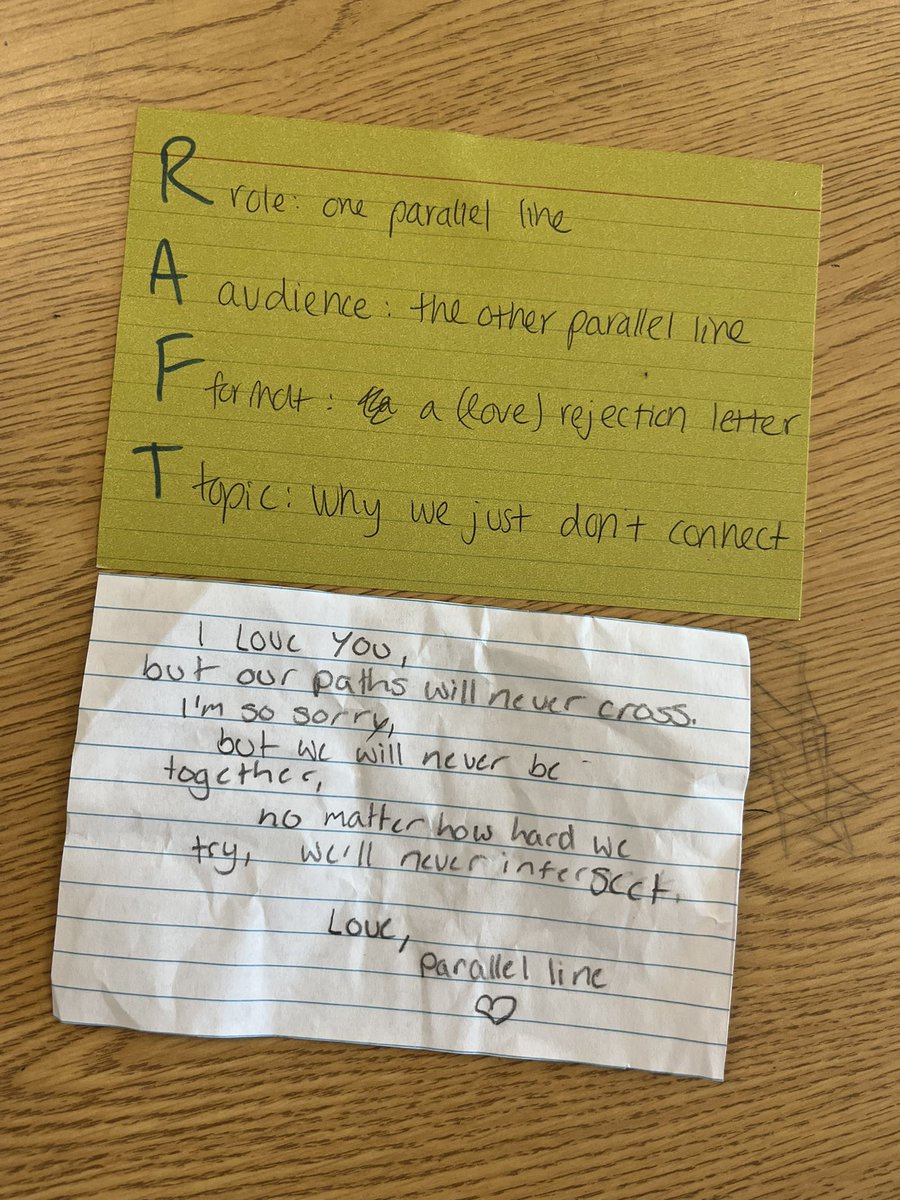 R role: one parallel line
A audience: the other parallel line
F format: a (love) rejection letter
T topic: why we just don't connect
I Love you,
but our paths will never cross.
I'm so sorry,
but we will never be
together,
no matter how hard we
try, we'll never intersect.
Love,
parallel line